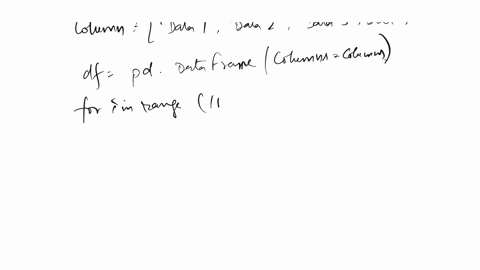 Column = [ 'Data 1', Data 2', Data 3',
df = pd. DataFrame (Columns = Columns)
for i in range (11